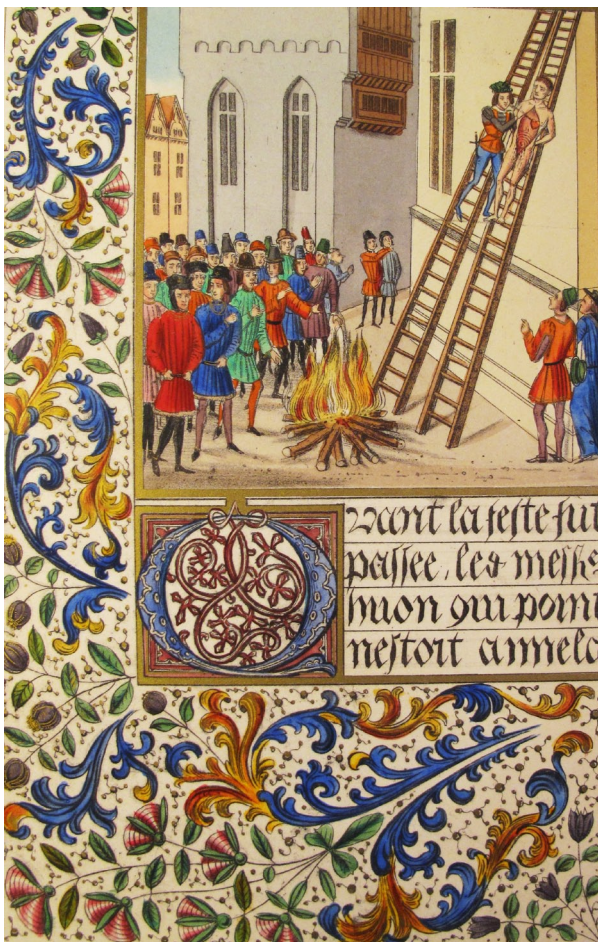 Quant la feste fut
passee, les messe
huon qui point
nestoit a melo